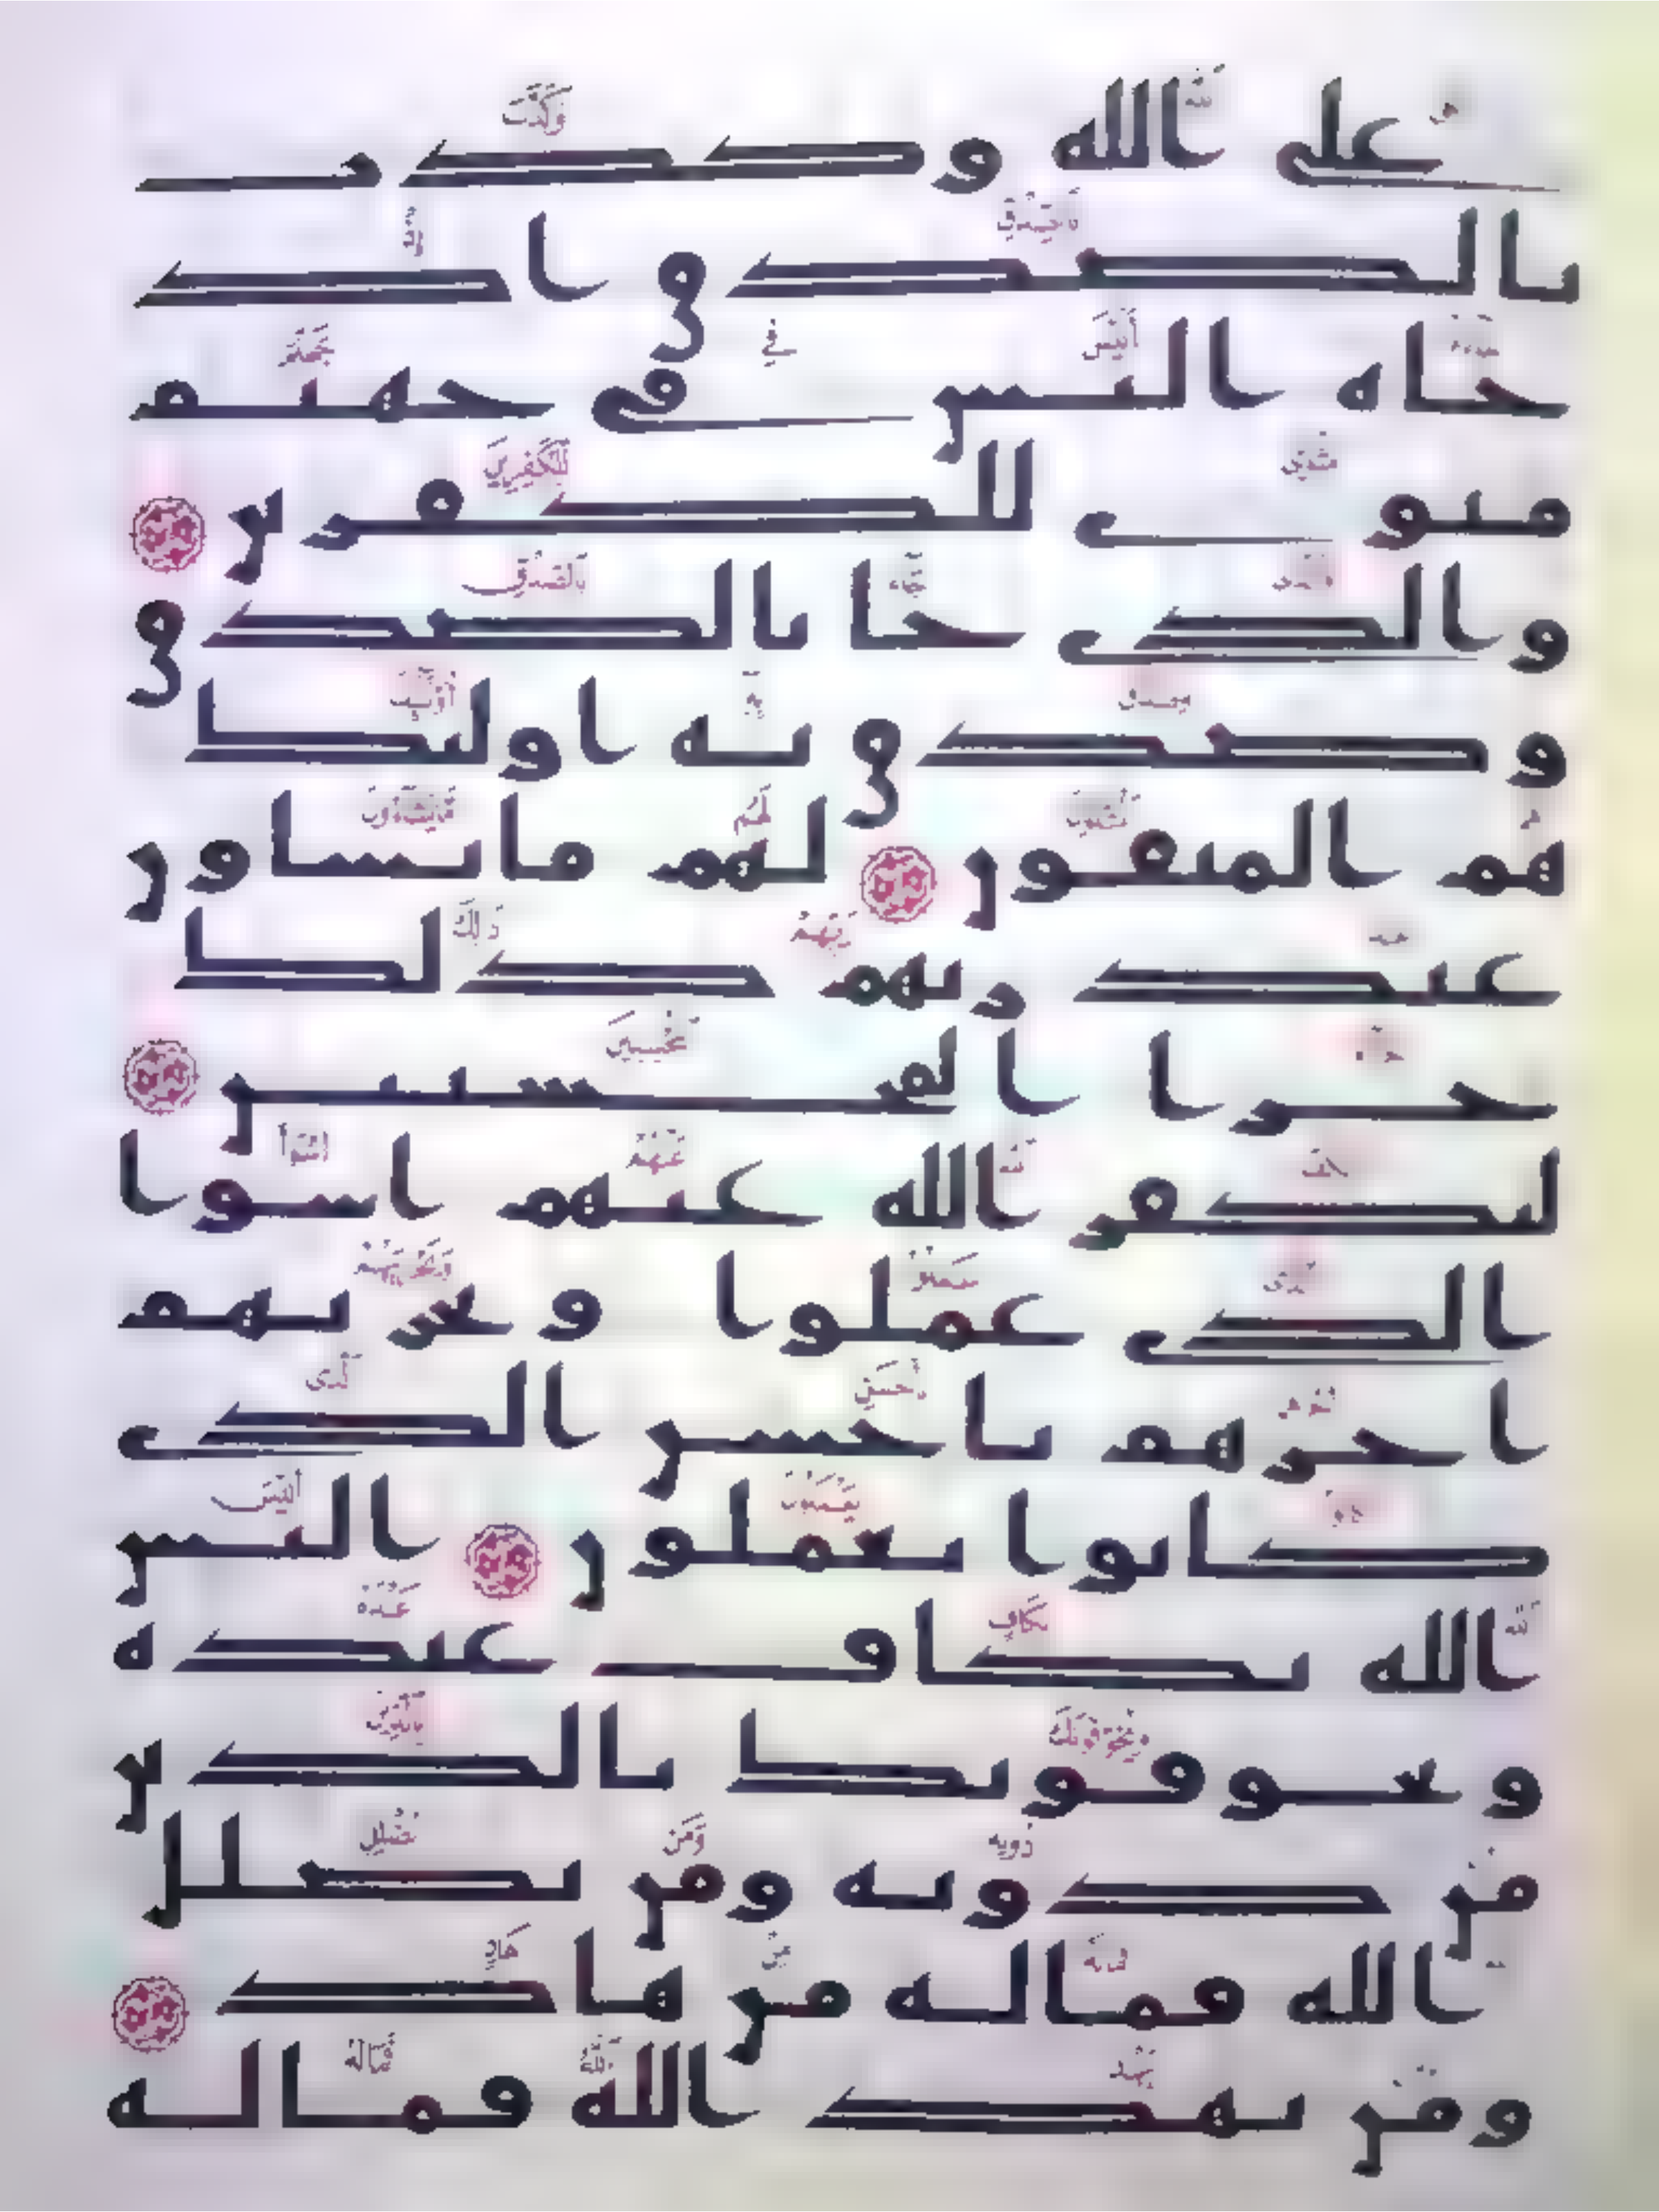 على الله وكذب
بالصدق اذ
جاه اليس في جهنم
مثوى للكفرين
والذي جا بالصدق
وصدق به اوليك
هم المتقون لهم ما يشاون
عند ربهم ذلك
جزوا المحسنين
ليكفر الله عنهم اسوا
الذي عملوا ويجزيهم
اجرهم باحسن الذي
كانوا يعملون اليس
الله بكاف عبده
ويخوفونك بالذين
من دونه ومن يضلل
الله فما له من هاد
ومن يهد الله فما له